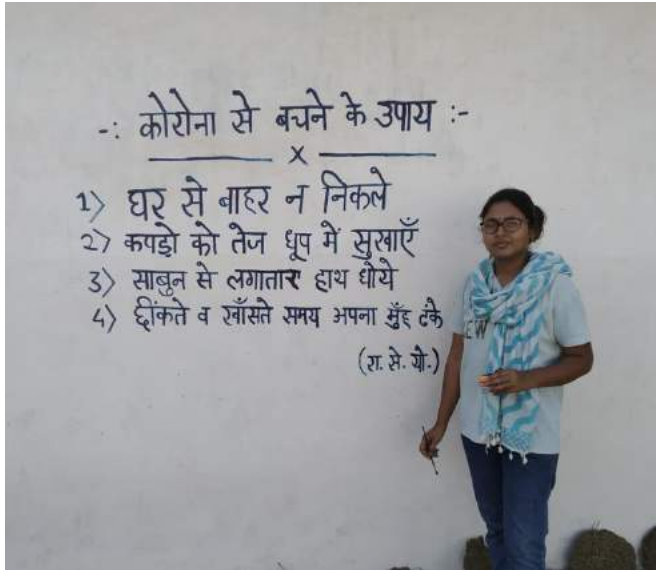 -: कोरोना से बचने के उपाय :-
x
1) घर से बाहर न निकले
2) कपड़ो को तेज धूप में सुखाएँ
3) साबुन से लगातार हाथ धोये
4) छींकते व खाँसते समय अपना मुँह ढंके
(रा. से. यो.)